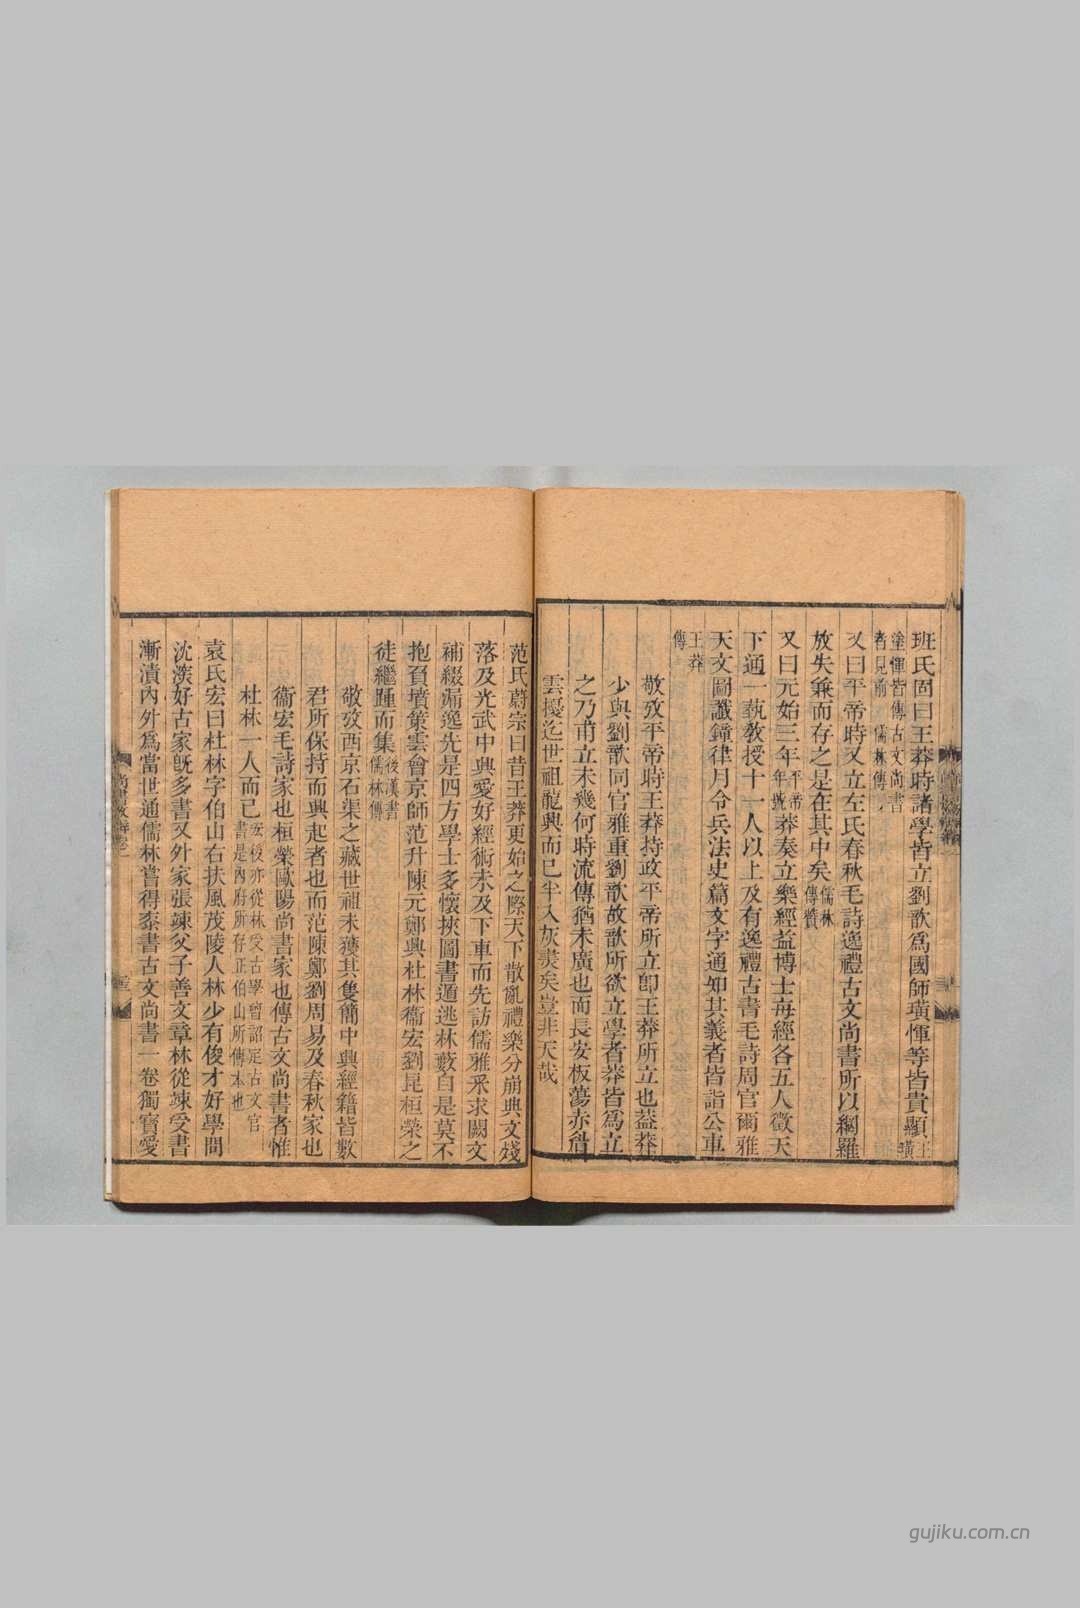 班氏固曰王莽時諸學皆立劉歆爲國師璜惲等皆貴顯王璜
塗惲皆傳古文尚書
者見前 儒林傳
又曰平帝時又立左氏春秋毛詩逸禮古文尚書所以網羅
放失兼而存之是在其中矣儒林傳贊
又曰元始三年平帝年號莽奏立樂經益博士每經各五人徵天
下通一藝教授十一人以上及有逸禮古書毛詩周官爾雅
天文圖讖鐘律月令兵法史篇文字通知其義者皆詣公車
王莽傳
敬攷平帝時王莽持政平帝所立卽王莽所立也葢莽
少與劉歆同官雅重劉歆故歆所欲立學者莽皆爲立
之乃甫立未幾何時流傳猶未廣也而長安板蕩赤眉
雲擾迄世祖龍興而已半入灰燹矣豈非天哉
范氏蔚宗曰昔王莽更始之際天下散亂禮樂分崩典文殘
落及光武中興愛好經術未及下車而先訪儒雅采求闕文
補綴漏逸先是四方學士多懷挾圖書遁逃林藪自是莫不
抱負墳策雲會京師范升陳元鄭興杜林衞宏劉昆桓榮之
徒繼踵而集後漢書儒林傳
敬攷西京石渠之藏世祖未獲其隻簡中興經籍皆數
君所保持而興起者也而范陳鄭劉周易及春秋家也
衞宏毛詩家也桓榮歐陽尚書家也傳古文尚書者惟
杜林一人而已宏後亦從林受古學曾詔定古文官
書是內府所存正伯山所傳本也
袁氏宏曰杜林字伯山右扶風茂陵人林少有俊才好學問
沈深好古家旣多書又外家張竦父子善文章林從竦受書
漸漬內外爲當世通儒林嘗得桼書古文尚書一卷獨寶愛
gujiku.com.cn